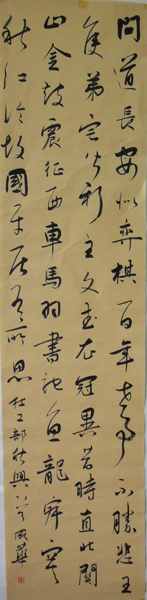 問道長安似弈棋百年世事不勝悲王
侯弟宅皆新主文武衣冠異昔時直北關
山金鼓震征西車馬羽書馳魚龍寂寞
秋江冷故國平居有所思 杜工部秋興 成華